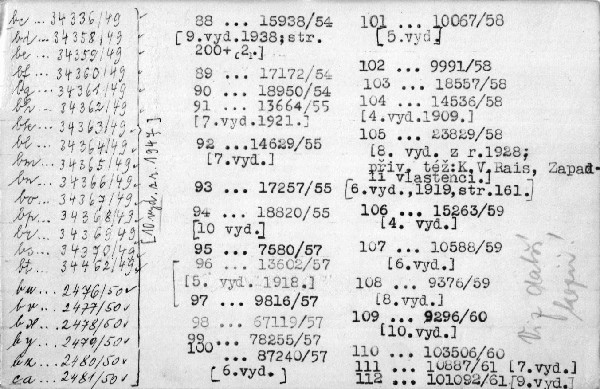 bc ... 34336/49
bd ... 34358/49
be ... 34359/49
bf ... 34360/49
bg ... 34361/49
bh ... 34362/49
bk ... 34363/49
bl ... 34364/49
bm ... 34365/49
bn ... 34366/49
bo ... 34367/49
bp ... 34368/49
br ... 34369/49
bs ... 34370/49
bt ... 34462/49
bu ... 2476/50
bv ... 2477/50
bx ... 2478/50
by ... 2479/50
bz ... 2480/50
ca ... 2481/50
[10.vyd. s.r. 1947]
88 ... 15938/54
[9.vyd.1938;str.
200+
89 ... 17172/54
90 ... 18950/54
91 ... 13664/55
[7.vyd.1921.]
92 ...14629/55
[7.vyd.]
93 ... 17257/55
94 ... 18820/55
[10 vyd.]
95 ... 7580/57
96 ... 13602/57
[5. vyd. 1918.]
97 ... 9816/57
98 ... 67119/57
99 ... 78255/57
100 ... 87240/57
[6.vyd.]
101 ... 10067/58
[5.vyd.]
102 ... 9991/58
103 ... 18557/58
104 ... 14536/58
[4.vyd.1909.]
105 ... 23829/58
[8. vyd. z r.1928;
přiv. též:K.V.Rais, Zapad-
lí vlastenci.]
[6.vyd.,1919,str.161.]
106 ... 15263/59
[4. vyd.]
107 ... 10588/59
[6.vyd.]
108 ... 9376/59
[8.vyd.]
109 ... 9296/60
[10.vyd.]
110 ... 103506/60
111 ... 10887/61 [7.vyd.]
112 ... 101092/61[9.vyd.]
Viz další